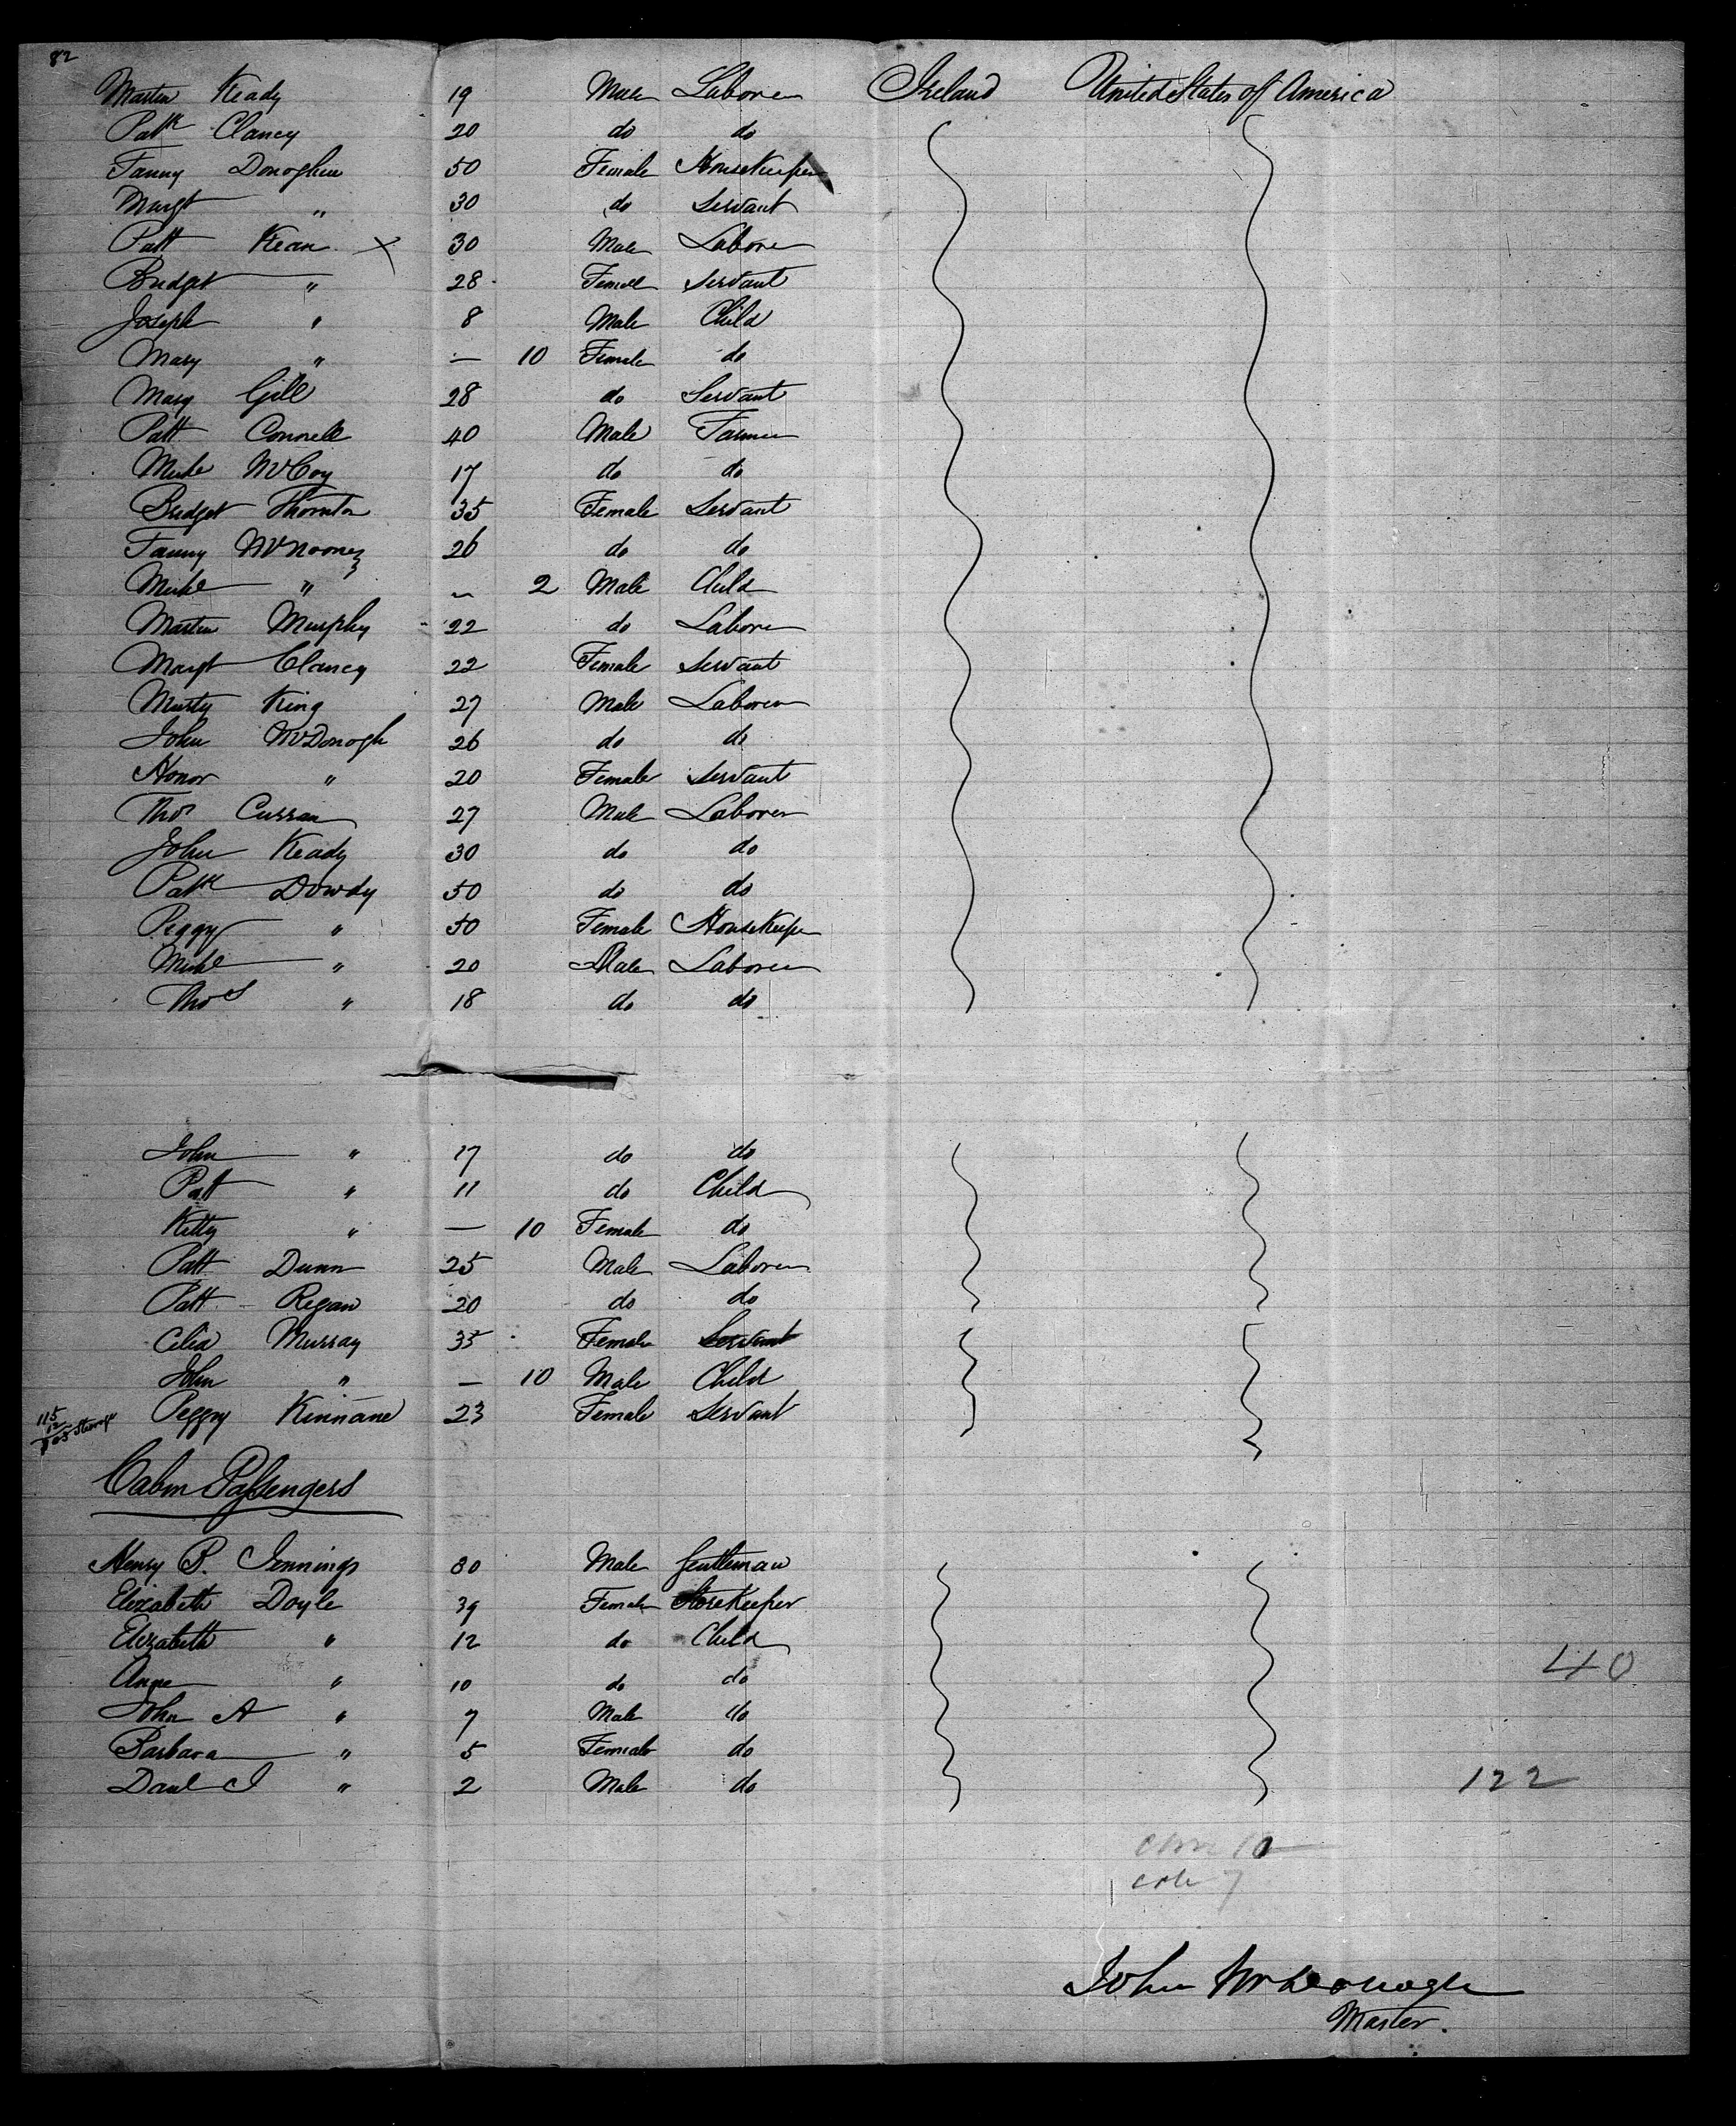 82
Martin Keady 19 Male Laborer Ireland United States of America
Patk Clancy 20 do do
Fanny Donoghue 50 Female Housekeeper
Margt " 30 do Servant
Patt Kean X 30 Male Laborer
Bridget " 28 Female Servant
Joseph " 8 Male Child
Mary " — 10 Female do
Mary Gill 28 do Servant
Patt Connell 40 Male Farmer
Michl McCoy 17 do do
Bridget Thornton 35 Female Servant
Fanny 26 do do
Michl " — 2 Male Child
Martin Murphy 22 do Laborer
Margt Clancy 22 Female Servant
Murty King 27 Male Laborer
John McDonogh 26 do do
Honor " 20 Female Servant
Thos Curran 27 Male Laborer
John Keady 30 do do
Patk Dowdy 50 do do
Peggy " 50 Female Housekeeper
Michl " 20 Male Laborer
Thos " 18 do do
John " 17 do do
Patt " 11 do Child
Kitty " — 10 Female do
Patt Dunn 25 Male Laborer
Patt Regan 20 do do
Celia Murray 35 Female Servant
John " — 10 Male Child
Peggy Kinnane 23 Female Servant
115
Cabin Passengers
Henry B. Jennings 30 Male Gentleman
Elizabeth Doyle 39 Female Storekeeper
Elizabeth " 12 do Child
Anne " 10 do do
40
John A " 7 Male do
Barbara " 5 Female do
Danl J " 2 Male do
122
10
7
John McDonogh
Master.